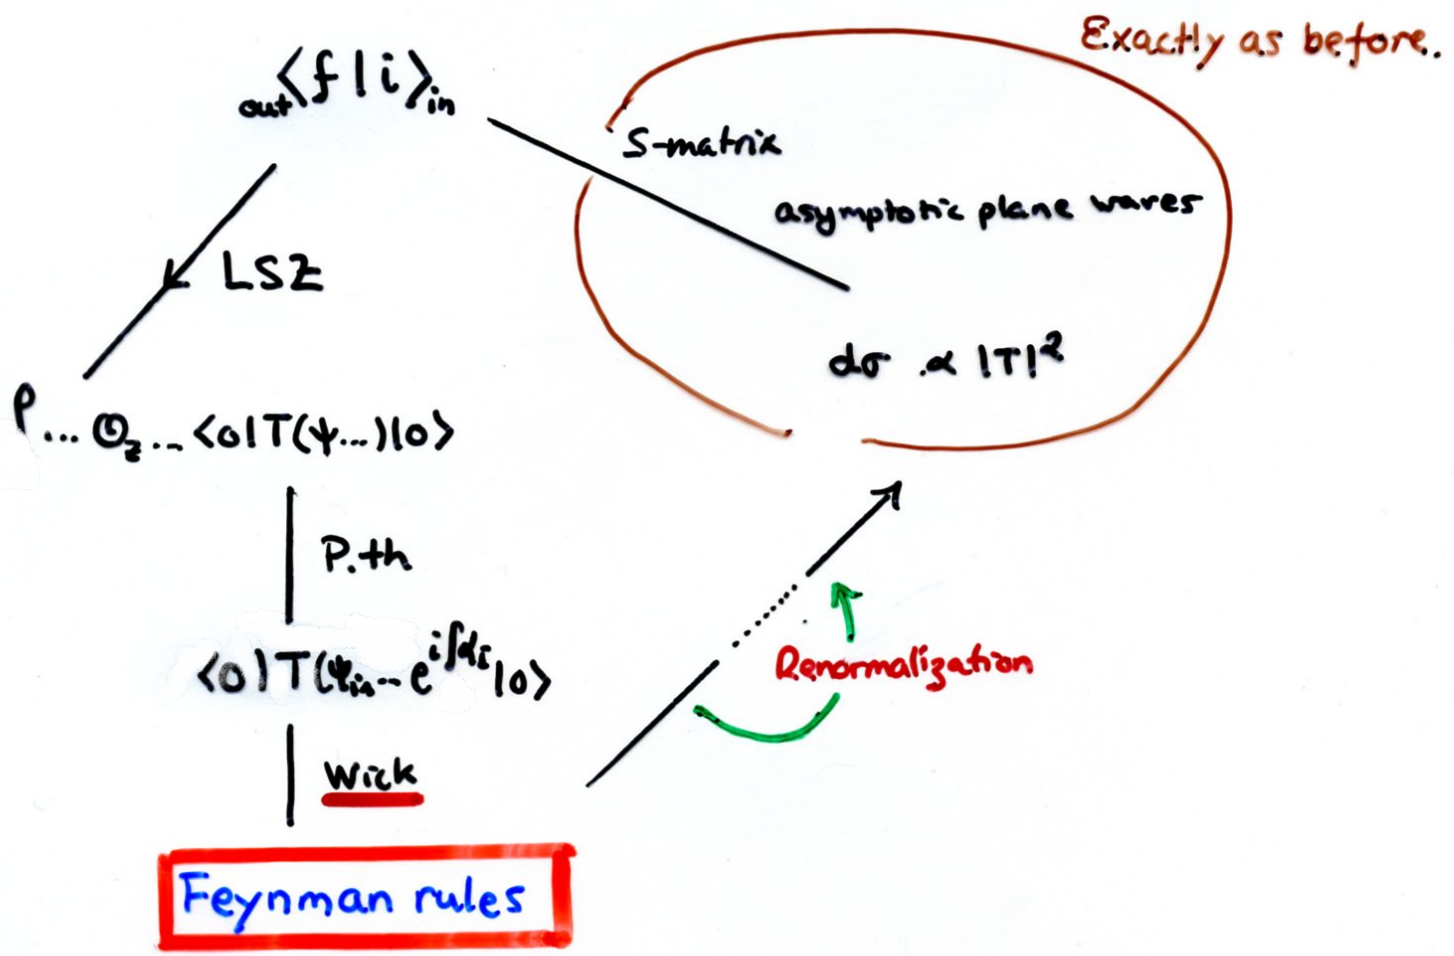 Exactly as before.
out⟨f|i⟩in
S-matrix
asymptotic plane waves
LSZ
dσ ∝ |T|²
P... O_z ... <0|T(ψ...)|0>
P.th
<0|T(ψ_in... e^{i∫ℒ_I}|0>
Renormalization
Wick
Feynman rules